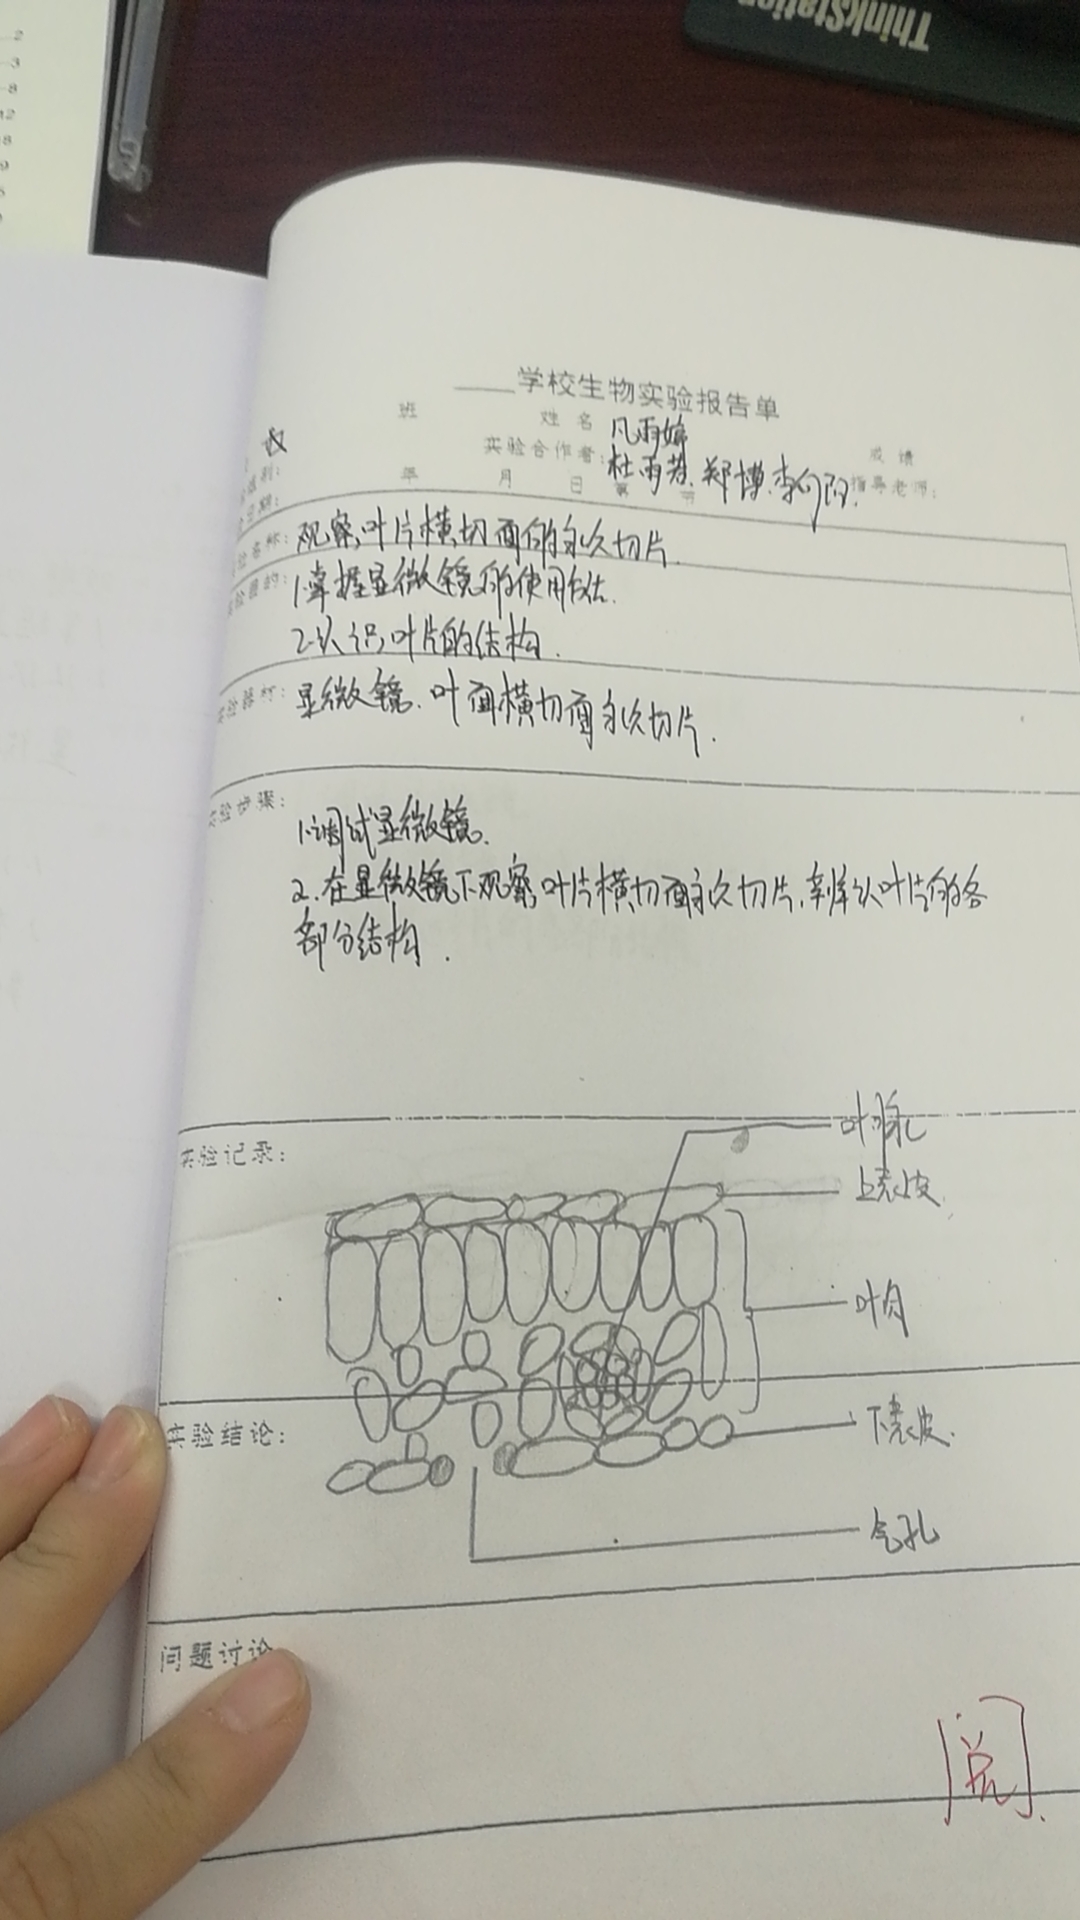 ThinkStation
2
3
8
学校生物实验报告单
班 姓名 凡雨婷
实验合作者: 杜雨芳.郑博.李向阳. 成绩
年 月 日 第 节 指导老师:
名称: 观察叶片横切面的永久切片.
验目的: 1.掌握显微镜的使用方法.
2.认识叶片的结构.
验器材: 显微镜.叶面横切面永久切片.
实验步骤: 1.调试显微镜.
2.在显微镜下观察叶片横切面永久切片,辨认叶片的各
部分结构.
实验记录:
叶脉
上表皮.
叶肉
实验结论:
下表皮.
气孔
问题讨论
阅